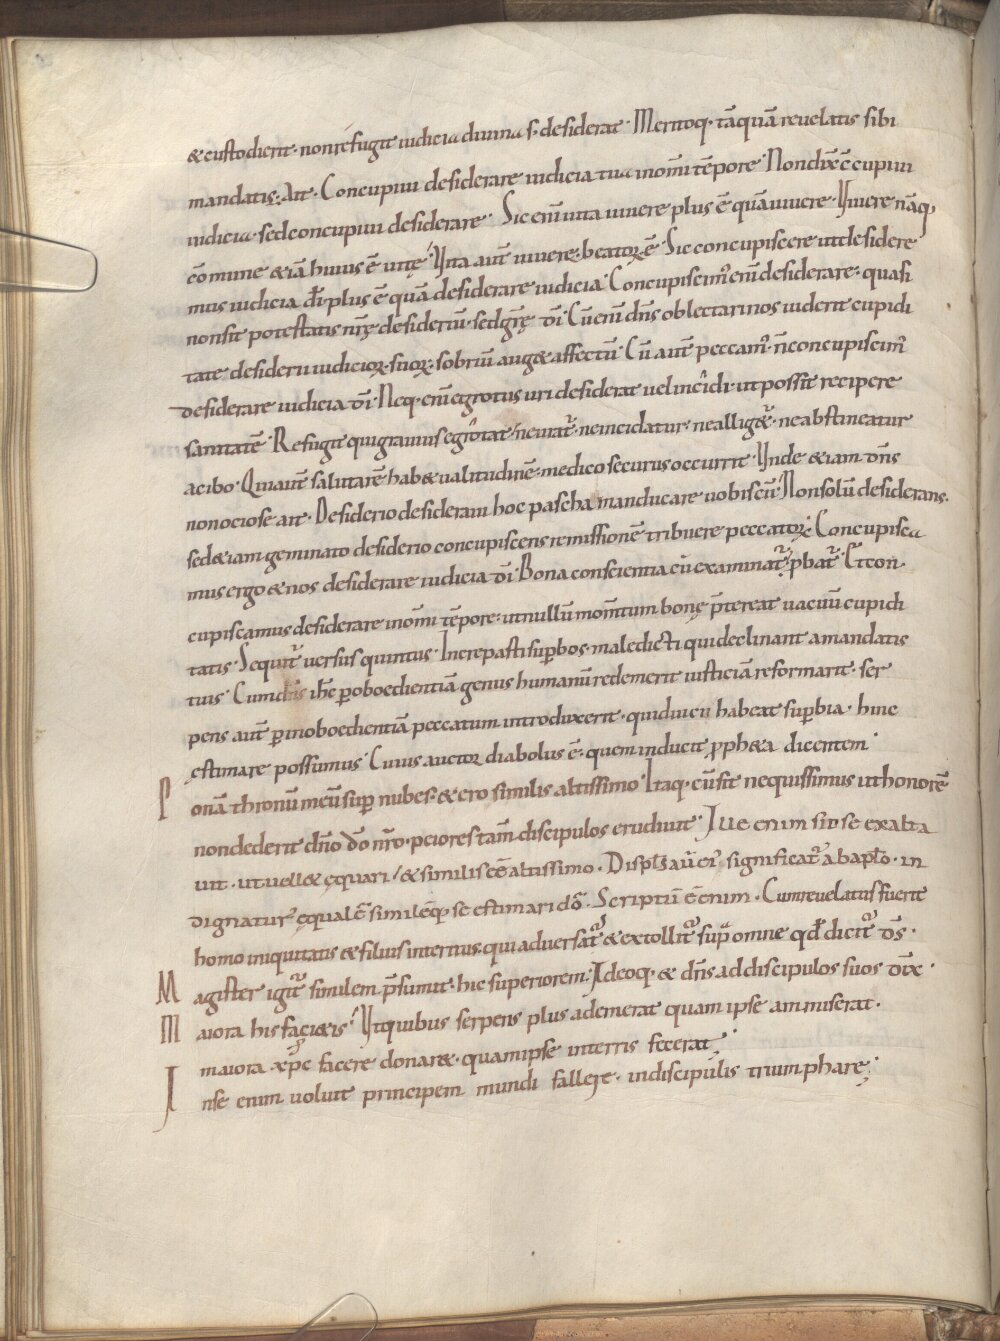 &custodierit· nonrefugit iudicia diuina s; desiderat· Meritoq· tāquā reuelatis sibi
mandatis· Ait· Concupiui desiderare iudicia tua inom̄i tēpore· Nondix̄ c̄cupiui
iudicia· sedconcupiui desiderare· Sic enī uita uiuere plus ē quā uiuere· Viuere nāq;
cōmune &iā huius ē uitę· Vita aut̄ uiuere· beatoꝝ ē· Sic concupiscere utdesidere
mus iudicia dī· plus ē quā desiderare iudicia· Concupiscim᾽ enī desiderare· quasi
nonsit potestatis nr̄ę desideriū· sedgr̄ę dī· Cū enī dn̄s oblectari nos uiderit cupidi
tate desiderii iudicioꝝ· suoꝝ· sobriū aug& affectū· Cū aut̄ peccam᾽· n̄concupiscim᾽
desiderare iudicia dī· Neq· enī egrotus uri desiderat uel incidi· ut possit recipere
sanitatē· Refugit qui grauius egrotat· neurat᾽· neincidatur· nealliget᾽· neabstineatur
acibo· Qui autē salutarē hab& ualitudinē· medico securus occurrit· Vnde &iam dn̄s
nonociose ait· Desiderio desideraui hoc pascha manducare uobiscū· Nonsolū desiderans·
sed&iam geminato desiderio concupiscens remissionē tribuere peccatoꝝ· Concupisca
mus ergo &nos desiderare iudicia dī· Bona conscientia cū examinat᾽· ꝓbat᾽· Et con
cupiscamus desiderare inom̄i tēpore· utnullū mom̄tum bonę p̄tereat uacuū cupidi
tatis· Sequit᾽ uersus quintus· Increpasti suꝑbos· maledicti qui declinant amandatis
tuis· Cum dn̄s ih̄c ꝑoboedientiā genus humanū redemerit iusticiā reformarit· ser
pens aut̄ ꝑinoboedientiā peccatum introduxerit· quid uicii habeat suꝑbia· hinc
ęstimare possumus· Cuius auctor diabolus ē· quem inducit ꝓph&a dicentem·
Ponā thronū meū suꝑ nubes· &ero similis altissimo· Itaq· cū sit nequissimus ut honorē
nondederit dn̄o dō nr̄o· peiores tam̄ discipulos erudiuit· Ille enim sibi se exalta
uit· ut uell& ęquari· &similis eē altissimo· Discipl̄s aut̄ ei᾽ significat᾽ abapl̄o· in
dignatur ęqualē similēq᾽ se estimari dō· Scriptū ē enim· Cumreuelatus fuerit
homo iniquitatis &filius internus· qui aduersat᾽ &extollit᾽ sup̄ omne qd̄ dicit᾽ d̄s·
Magister igit᾽ similem p̄sumit· hic superiorem· Ideoq· & dn̄s addiscipulos suos dix̄·
Maiora his faci&is· Vt quibus serpens plus ademerat quam ipse ammiserat·
maiora xp̄c facere donar&· quamipse interris fecerat·
Inse enim uoluit principem mundi fallere· indiscipulis triumphare·